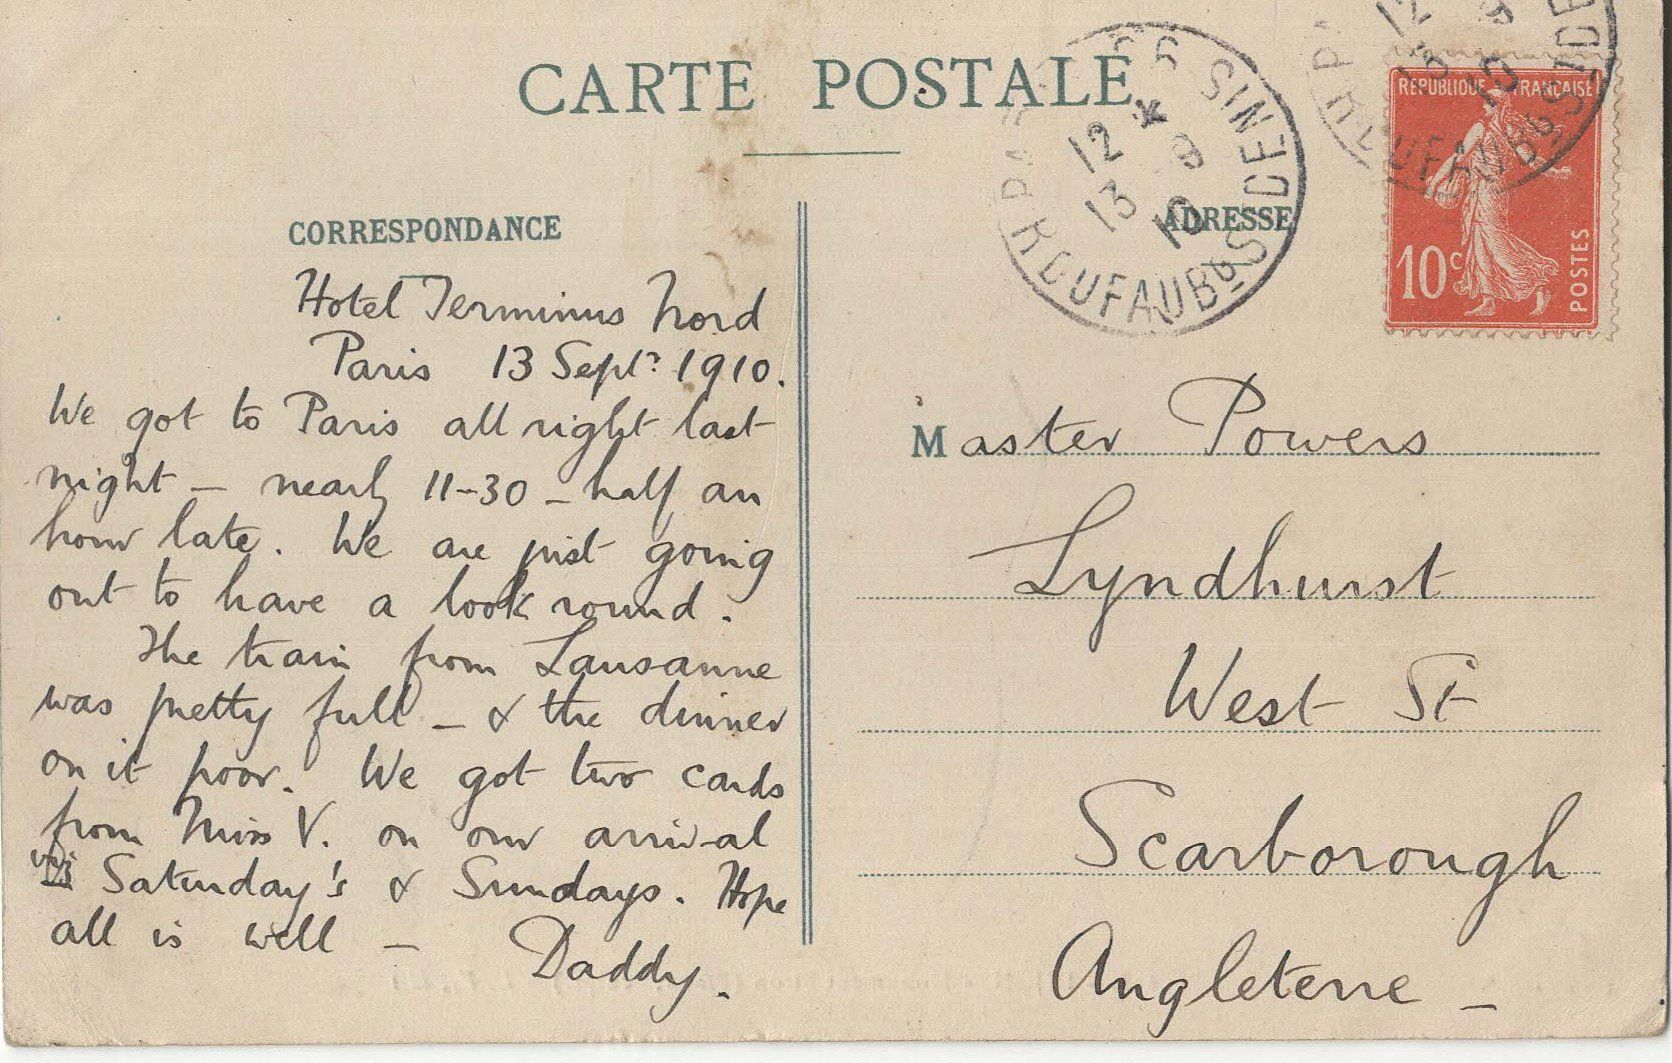 CARTE POSTALE
CORRESPONDANCE
Hotel Terminus Nord
Paris 13 Sept. 1910.
We got to Paris all right last
night – nearly 11-30 – half an
hour late. We are just going
out to have a look round.
The train from Lausanne
was pretty full – & the dinner
on it poor. We got two cards
from Miss V. on our arrival
viz Saturday's & Sundays. Hope
all is well –
Daddy.
12 * 9
13 10
R DU FAUBG ST DENIS
ADRESSE
RÉPUBLIQUE FRANÇAISE
10c
POSTES
Master Powers
Lyndhurst
West St
Scarborough
Angleterre –